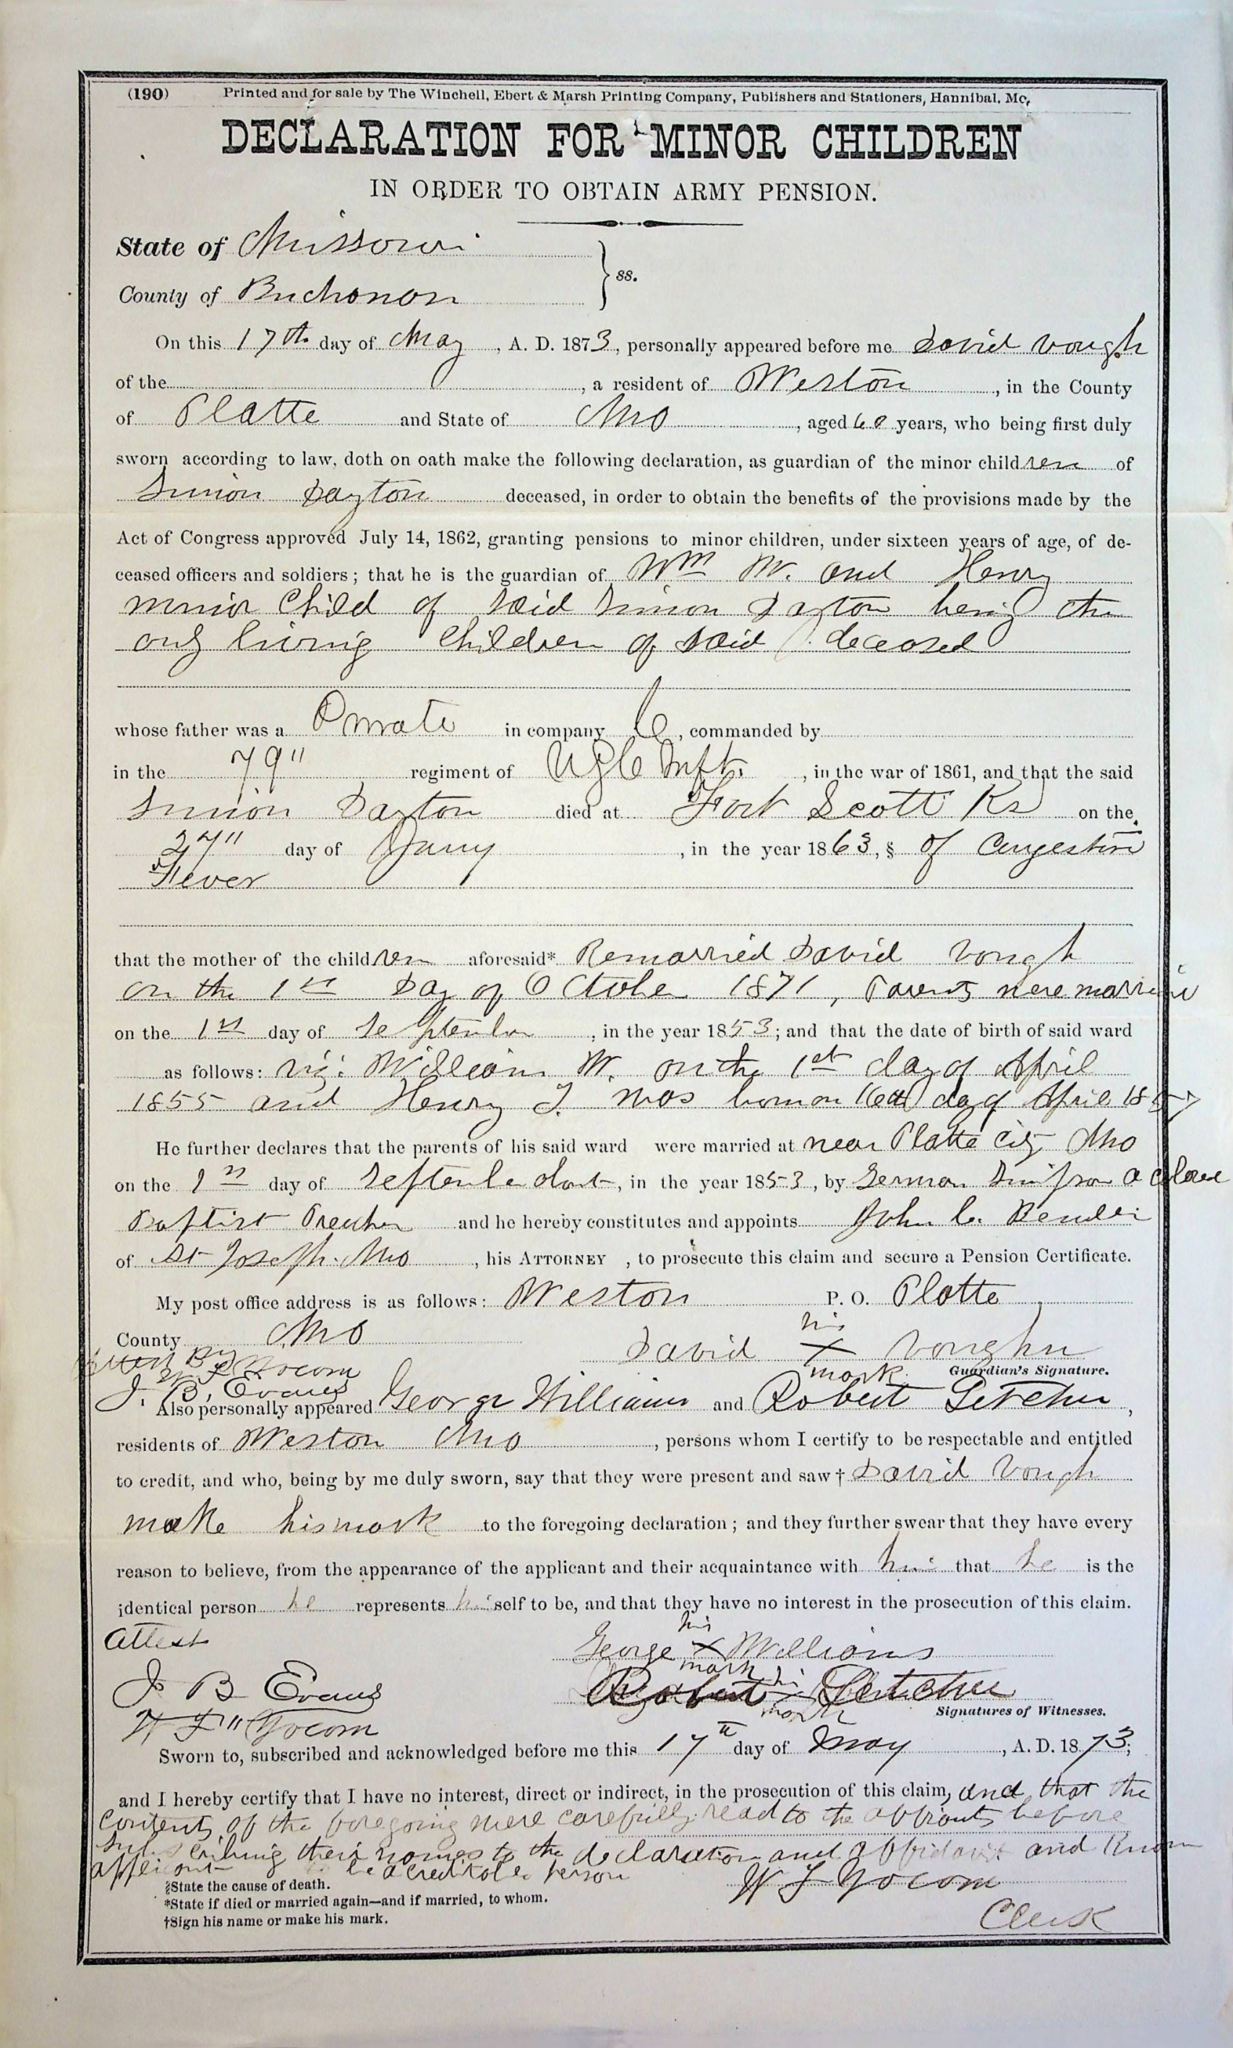 (190) Printed and for sale by The Winchell, Ebert & Marsh Printing Company, Publishers and Stationers, Hannibal, Mo.
DECLARATION FOR MINOR CHILDREN
IN ORDER TO OBTAIN ARMY PENSION.
State of Missouri
County of Buchanan } ss.
On this 17th day of May, A. D. 1873, personally appeared before me David Vough
of the , a resident of Weston, in the County
of Platte and State of Mo, aged 60 years, who being first duly
sworn according to law, doth on oath make the following declaration, as guardian of the minor children of
Simon Dayton deceased, in order to obtain the benefits of the provisions made by the
Act of Congress approved July 14, 1862, granting pensions to minor children, under sixteen years of age, of de-
ceased officers and soldiers; that he is the guardian of Wm W. and Henry
minor Child of said Simon Dayton being the
only living Children of said deceased
whose father was a Private in company C, commanded by
in the 79" regiment of Inft., in the war of 1861, and that the said
Simon Dayton died at Fort Scott Ks on the
27" day of Jany, in the year 1863,§ of Congestive
Fever
that the mother of the children aforesaid* Remarried David Vough
on the 1st Day of October 1871, Parents were married
on the 1st day of September, in the year 1853; and that the date of birth of said ward
as follows: viz: William W. on the 1st day of April
1855 and Henry J. was born on 16th day of April 1857
He further declares that the parents of his said ward were married at near Platte City Mo
on the 1st day of September, in the year 1853, by Simpson a
Baptist Preacher and he hereby constitutes and appoints John C. Bender
of St Joseph Mo, his ATTORNEY, to prosecute this claim and secure a Pension Certificate.
My post office address is as follows: Weston P. O. Platte
County Mo
David his X mark Vough
Guardian's Signature.
W F Yocom
J. B. Evans
Also personally appeared George Williams and Robert Fletcher,
residents of Weston Mo, persons whom I certify to be respectable and entitled
to credit, and who, being by me duly sworn, say that they were present and saw† David Vough
make his mark to the foregoing declaration; and they further swear that they have every
reason to believe, from the appearance of the applicant and their acquaintance with him that he is the
identical person he represents himself to be, and that they have no interest in the prosecution of this claim.
Attest
George his X mark Williams
J B Evans
Robert his X mark Fletcher
W F Yocom
Signatures of Witnesses.
Sworn to, subscribed and acknowledged before me this 17th day of May, A. D. 1873;
and I hereby certify that I have no interest, direct or indirect, in the prosecution of this claim, and that the
contents of the foregoing were carefully read to the affiants before
subscribing their names to the declaration and affidavit and know
applicant to be a creditable person
W F Yocom
Clerk
§State the cause of death.
*State if died or married again—and if married, to whom.
†Sign his name or make his mark.